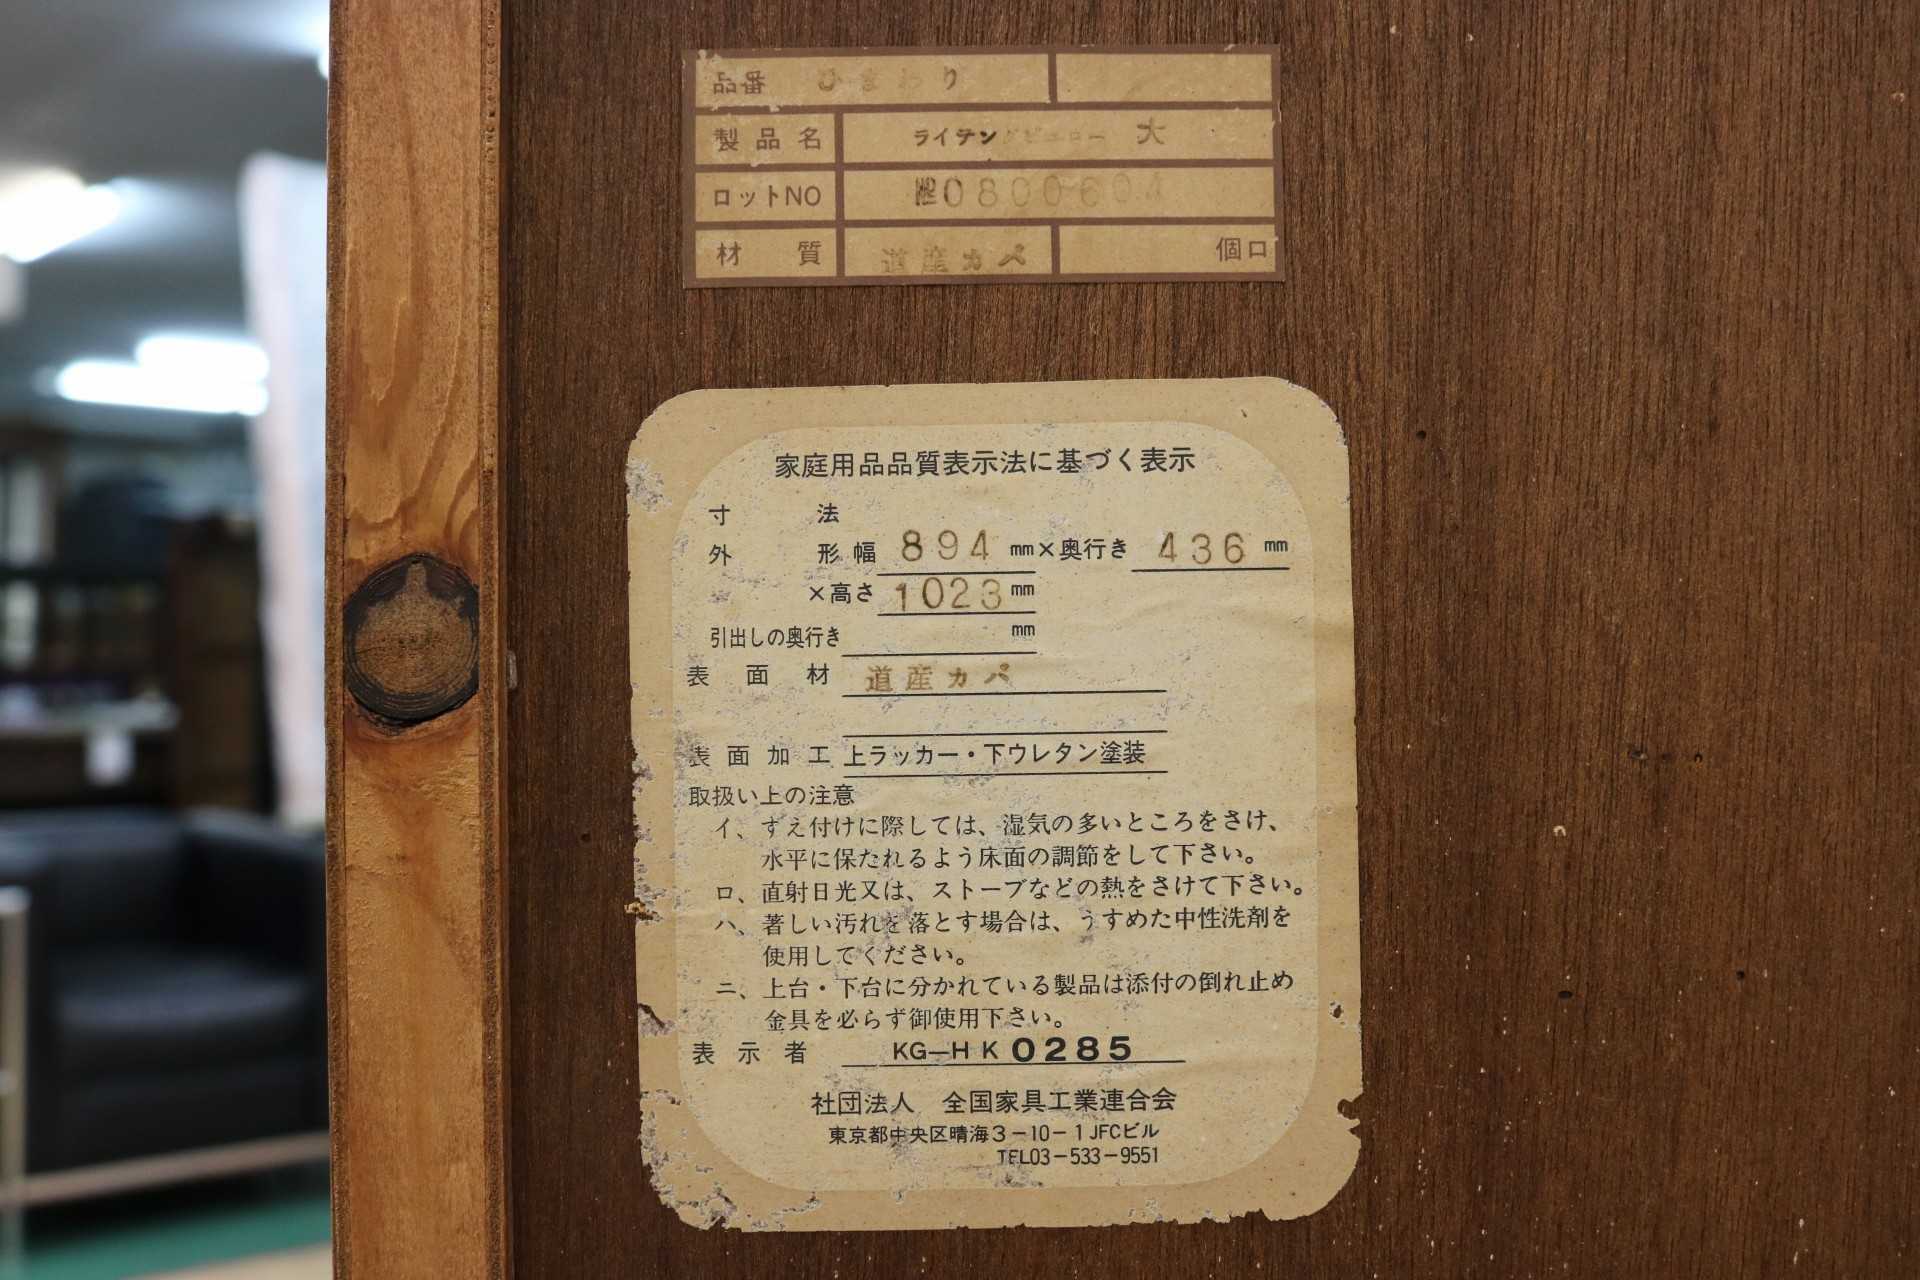 品番 ひまわり
製品名 ライテングビューロー 大
ロットNO 0800604
材質 道産カバ 個口
家庭用品品質表示法に基づく表示
寸法
外形幅 894 mm×奥行き 436 mm
×高さ 1023 mm
引出しの奥行き mm
表面材 道産カバ
表面加工 上ラッカー・下ウレタン塗装
取扱い上の注意
イ、すえ付けに際しては、湿気の多いところをさけ、
水平に保たれるよう床面の調節をして下さい。
ロ、直射日光又は、ストーブなどの熱をさけて下さい。
ハ、著しい汚れを落とす場合は、うすめた中性洗剤を
使用してください。
ニ、上台・下台に分かれている製品は添付の倒れ止め
金具を必らず御使用下さい。
表示者 KG—HK0285
社団法人 全国家具工業連合会
東京都中央区晴海3-10-1JFCビル
TEL03-533-9551